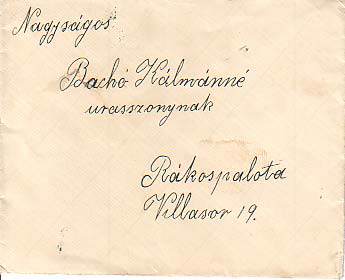 Nagyságos
Bachó Kálmánné
urasszonynak
Rákospalota
Villasor 19.